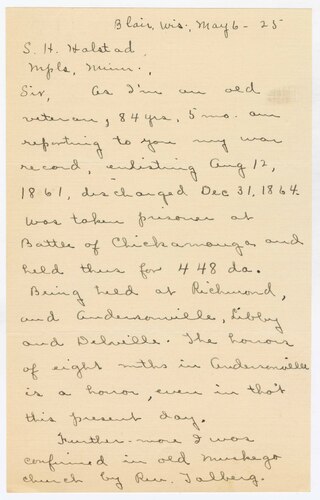 Blair, Wis., May 6 - 25
S. H. Halstad
Mpls, Minn.,
Sir, As I'm an old
veteran, 84 yrs, 5 mo. am
reporting to you my war
record, enlisting Aug 12,
1861, discharged Dec 31, 1864.
Was taken prisoner at
Battle of Chickamauga and
held thus for 448 da.
Being held at Richmond,
and Andersonville, Libby
and Delville. The horrors
of eight mths in Andersonville
is a horror, even in tho't
this present day.
Further-more I was
confirmed in old Muskego
church by Rev. Talberg.